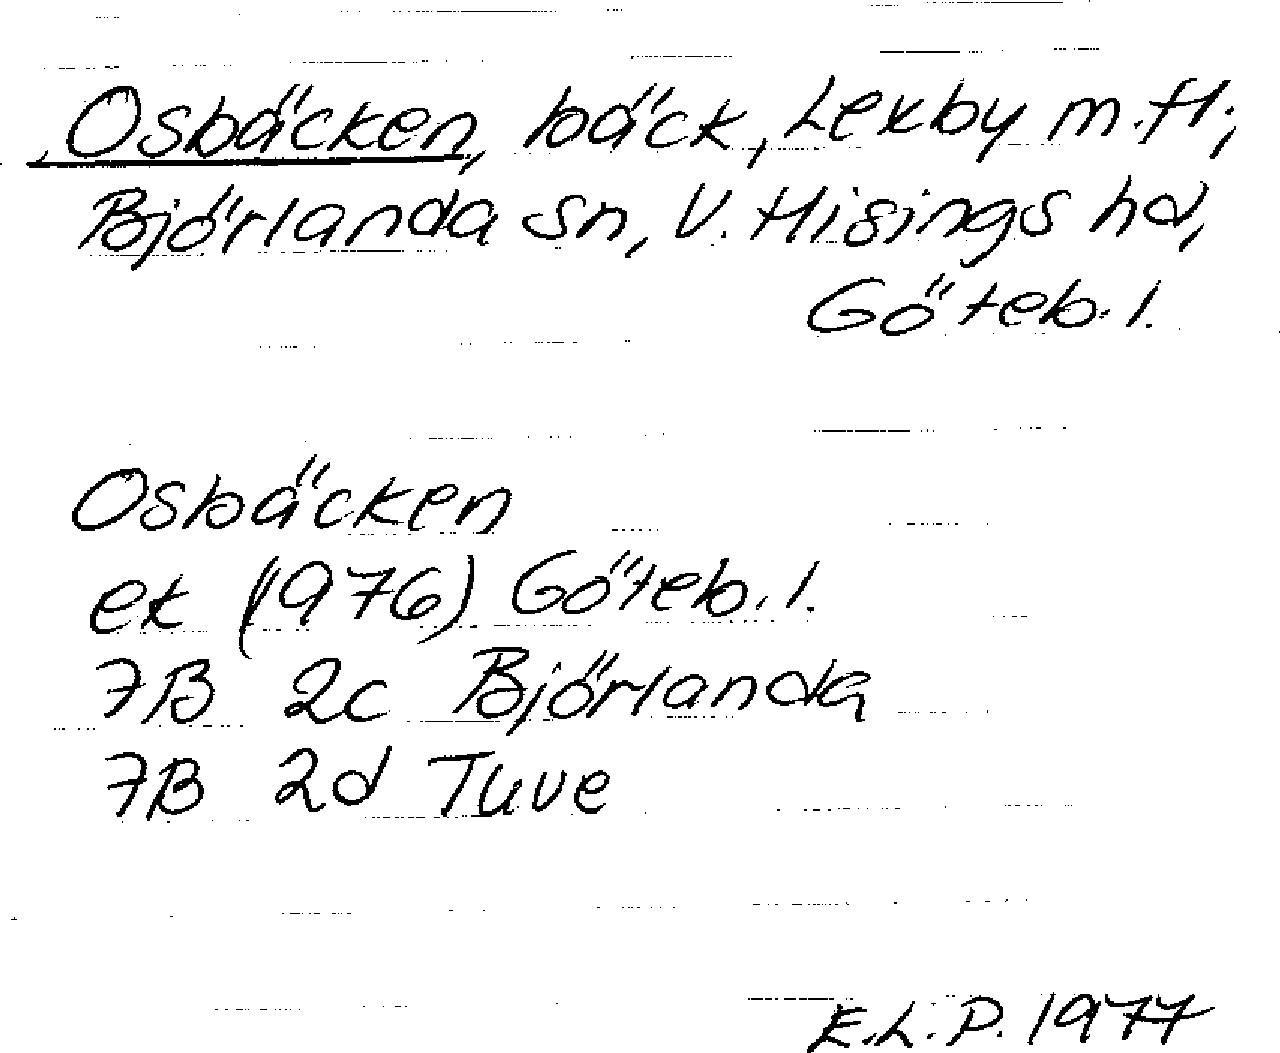 Osbäcken, bäck, Lexby m.fl.,
Björlanda sn, V. Hisings hd,
Göteb. l.
Osbäcken
ek (1976) Göteb. l.
7B 2c Björlanda
7B 2d Tuve
E.L.P. 1977